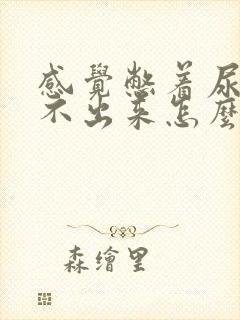 感覺憋着尿
不出來怎麼
森繪里